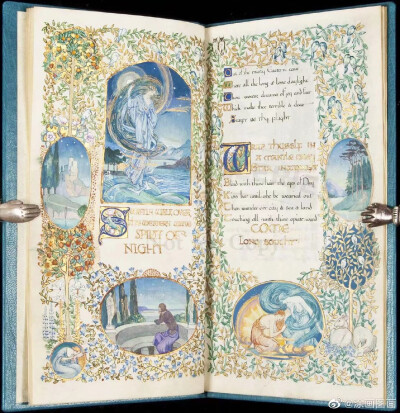 SWIFTLY WALK OVER
THE WESTERN WAVE
SPIRIT OF
NIGHT
Out of the misty Eastern cave
Where all the long & lone daylight
Thou wovest dreams of joy and fear
Which make thee terrible & dear
Swift be thy flight
WRAP THY FORM IN
A MANTLE GRAY
STAR INWROUGHT
Blind with thine hair the eyes of Day
Kiss her until she be wearied out
Then wander o'er city & sea & land
Touching all with thine opiate wand
COME
LONG SOUGHT